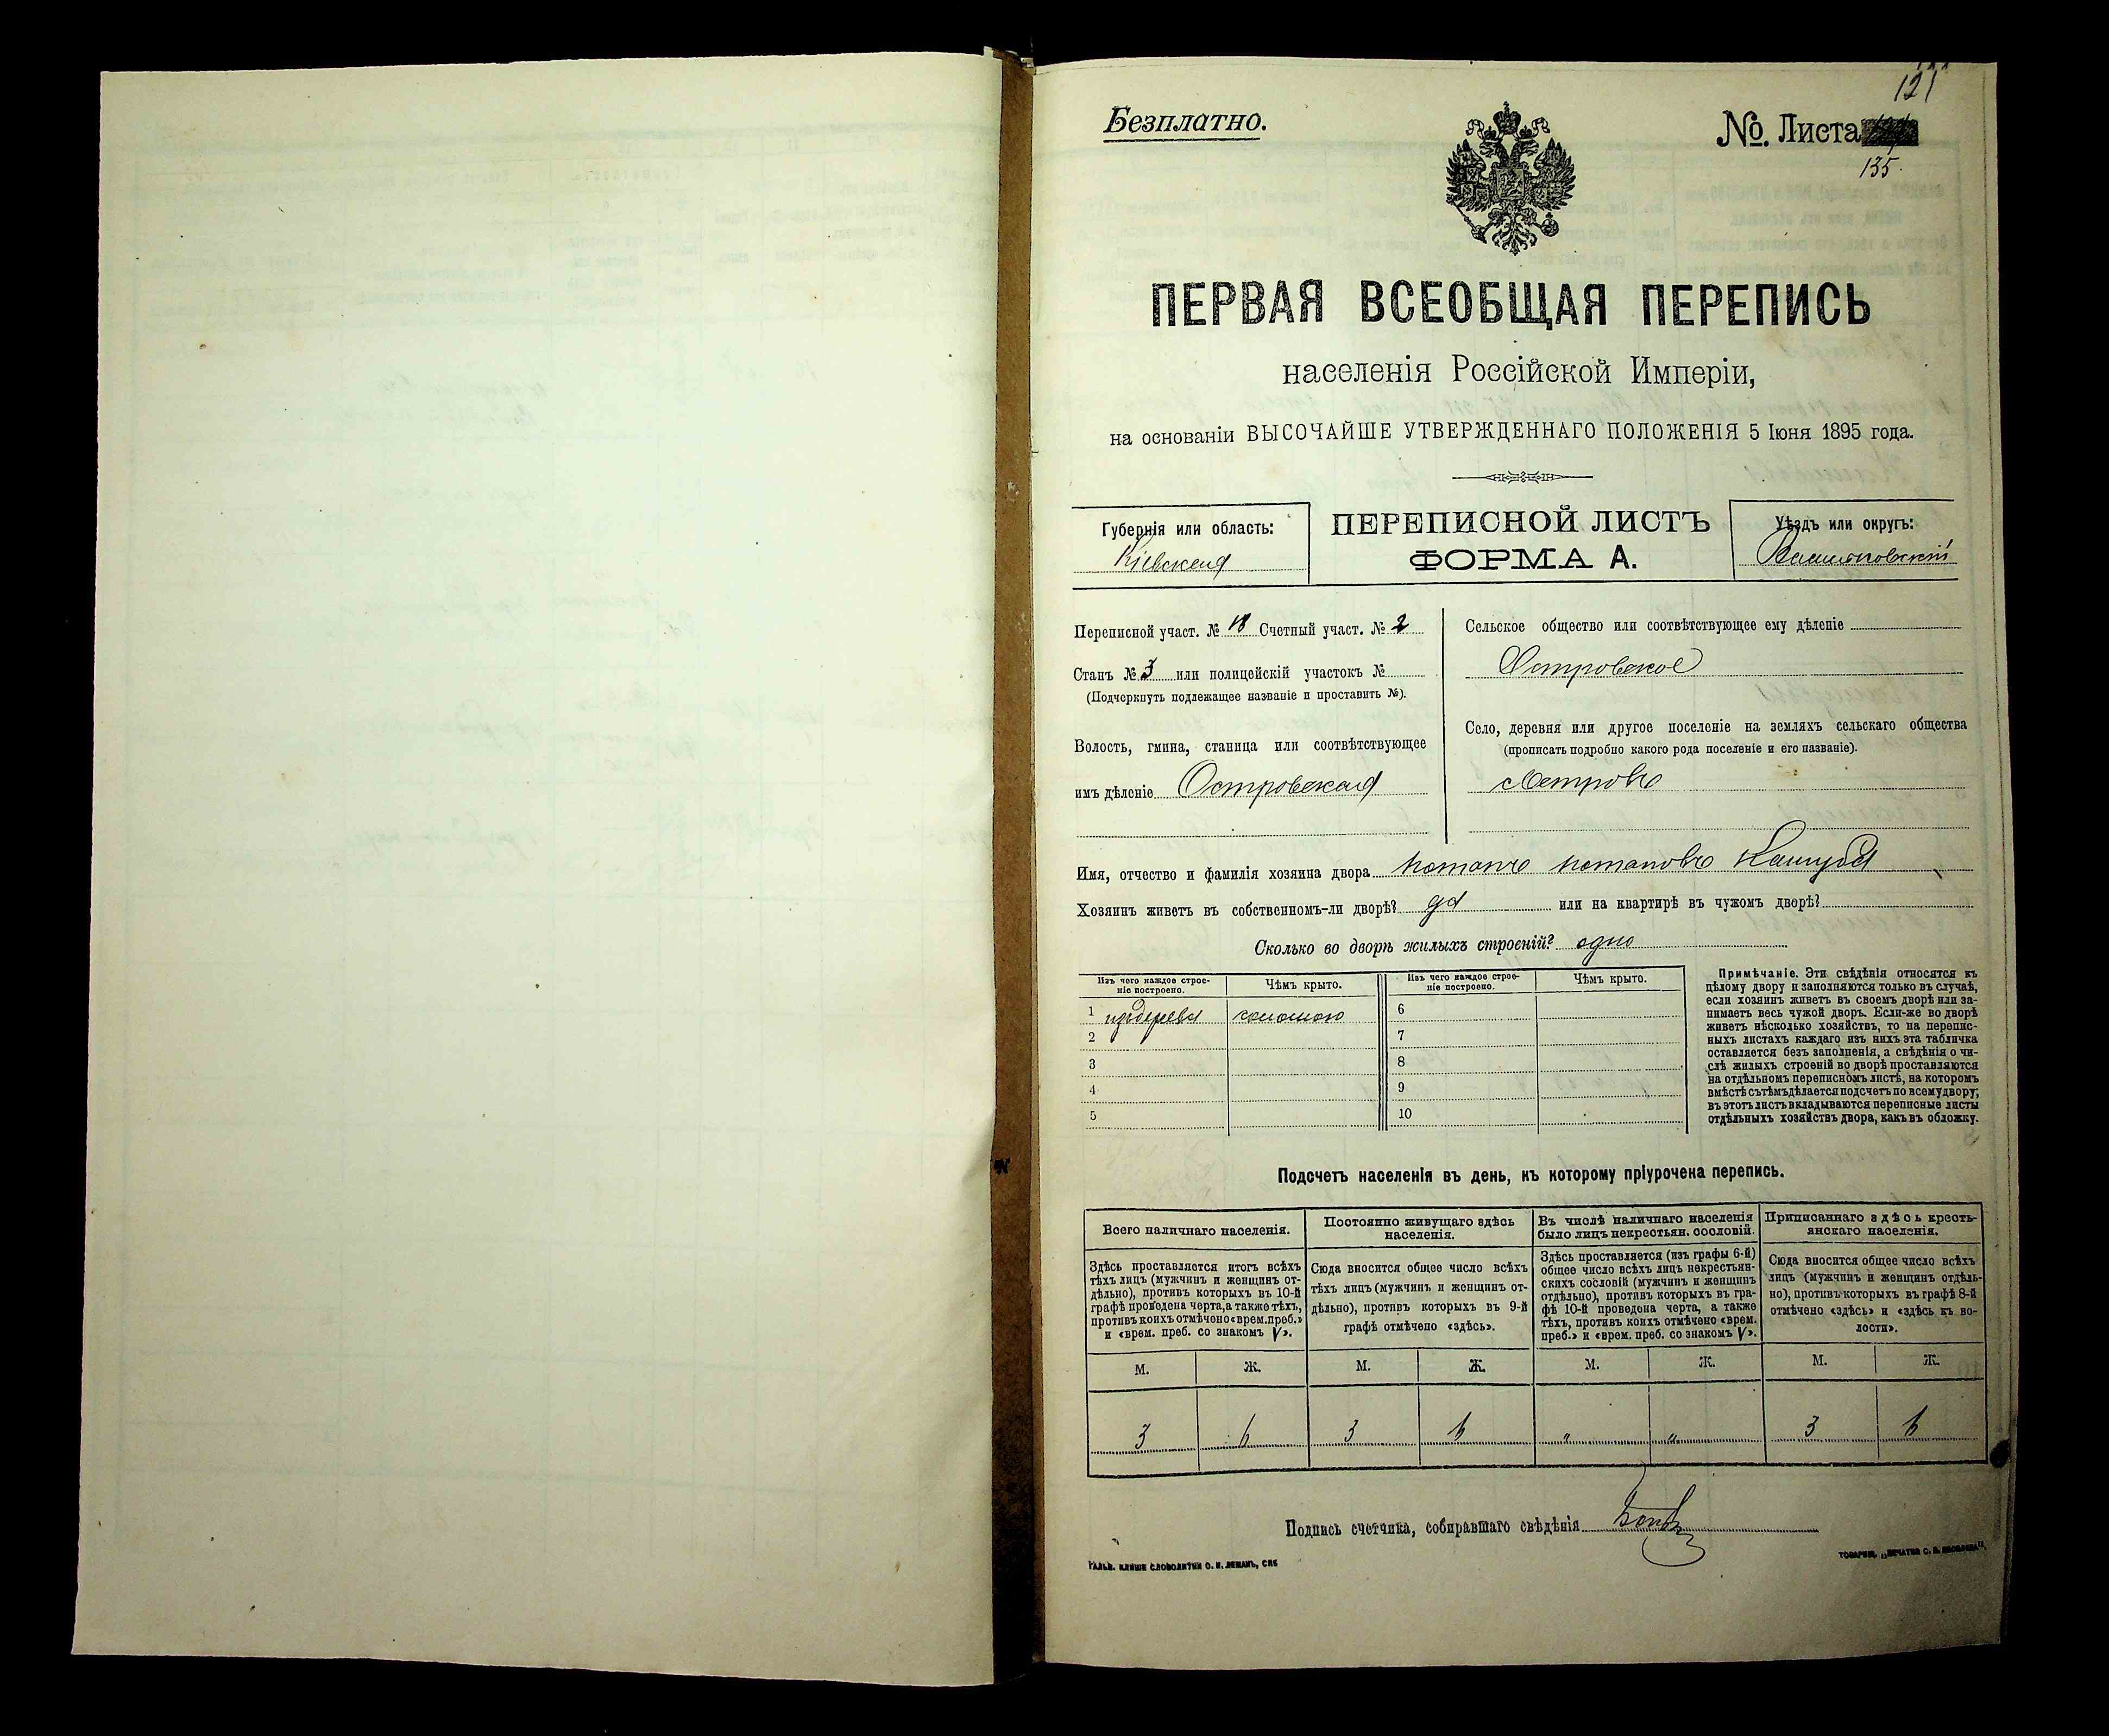 121
Безплатно.
№ Листа
135.
ПЕРВАЯ ВСЕОБЩАЯ ПЕРЕПИСЬ
населенія Россійской Имперіи,
на основаніи ВЫСОЧАЙШЕ УТВЕРЖДЕННАГО ПОЛОЖЕНІЯ 5 Іюня 1895 года.
Губернія или область:
Кіевская
ПЕРЕПИСНОЙ ЛИСТЪ
ФОРМА А.
Уѣздъ или округъ:
Васильковскій
Переписной участ. № 18 Счетный участ. № 2
Станъ № 3 или полицейскій участокъ №
(Подчеркнуть подлежащее названіе и проставить №).
Волость, гмина, станица или соотвѣтствующее
имъ дѣленіе Островская
Сельское общество или соотвѣтствующее ему дѣленіе
Островское
Село, деревня или другое поселеніе на земляхъ сельскаго общества
(прописать подробно какого рода поселеніе и его названіе).
Имя, отчество и фамилія хозяина двора Потапъ Потаповъ Кашуба
Хозяинъ живетъ въ собственномъ-ли дворѣ? да или на квартирѣ въ чужомъ дворѣ?
Сколько во дворѣ жилыхъ строеній? одно
Изъ чего каждое строе-
ніе построено.
Чѣмъ крыто.
Изъ чего каждое строе-
ніе построено.
Чѣмъ крыто.
1 издерева соломою 6
2 7
3 8
4 9
5 10
Примѣчаніе. Эти свѣдѣнія относятся къ
цѣлому двору и заполняются только въ случаѣ,
если хозяинъ живетъ въ своемъ дворѣ или за-
нимаетъ весь чужой дворъ. Если-же во дворѣ
живетъ нѣсколько хозяйствъ, то на перепис-
ныхъ листахъ каждаго изъ нихъ эта табличка
оставляется безъ заполненія, а свѣдѣнія о чи-
слѣ жилыхъ строеній во дворѣ проставляются
на отдѣльномъ переписномъ листѣ, на которомъ
вмѣстѣ съ тѣмъ дѣлается подсчетъ по всему двору;
въ этотъ листъ вкладываются переписные листы
отдѣльныхъ хозяйствъ двора, какъ въ обложку.
Подсчетъ населенія въ день, къ которому пріурочена перепись.
Всего наличнаго населенія.
Здѣсь проставляется итогъ всѣхъ
тѣхъ лицъ (мужчинъ и женщинъ от-
дѣльно), противъ которыхъ въ 10-й
графѣ проведена черта, а также тѣхъ,
противъ коихъ отмѣчено «врем. преб.»
и «врем. преб. со знакомъ V».
Постоянно живущаго здѣсь
населенія.
Сюда вносится общее число всѣхъ
тѣхъ лицъ (мужчинъ и женщинъ от-
дѣльно), противъ которыхъ въ 9-й
графѣ отмѣчено «здѣсь».
Въ числѣ наличнаго населенія
было лицъ некрестьян. сословій.
Здѣсь проставляется (изъ графы 6-й)
общее число всѣхъ лицъ некрестьян-
скихъ сословій (мужчинъ и женщинъ
отдѣльно), противъ которыхъ въ гра-
фѣ 10-й проведена черта, а также
тѣхъ, противъ коихъ отмѣчено «врем.
преб.» и «врем. преб. со знакомъ V».
Приписаннаго здѣсь кресть-
янскаго населенія.
Сюда вносится общее число всѣхъ
лицъ (мужчинъ и женщинъ отдѣль-
но), противъ которыхъ въ графѣ 8-й
отмѣчено «здѣсь» и «здѣсь къ во-
лости».
М. Ж. М. Ж. М. Ж. М. Ж.
3 6 3 6 " " 3 6
Подпись счетчика, собиравшаго свѣдѣнія
ГАЛЬВ. КЛИШЕ СЛОВОЛИТНИ О. И. ЛЕМАНЪ, СПБ
ТОВАРИЩ. „ПЕЧАТНЯ С. П. ЯКОВЛЕВА“.